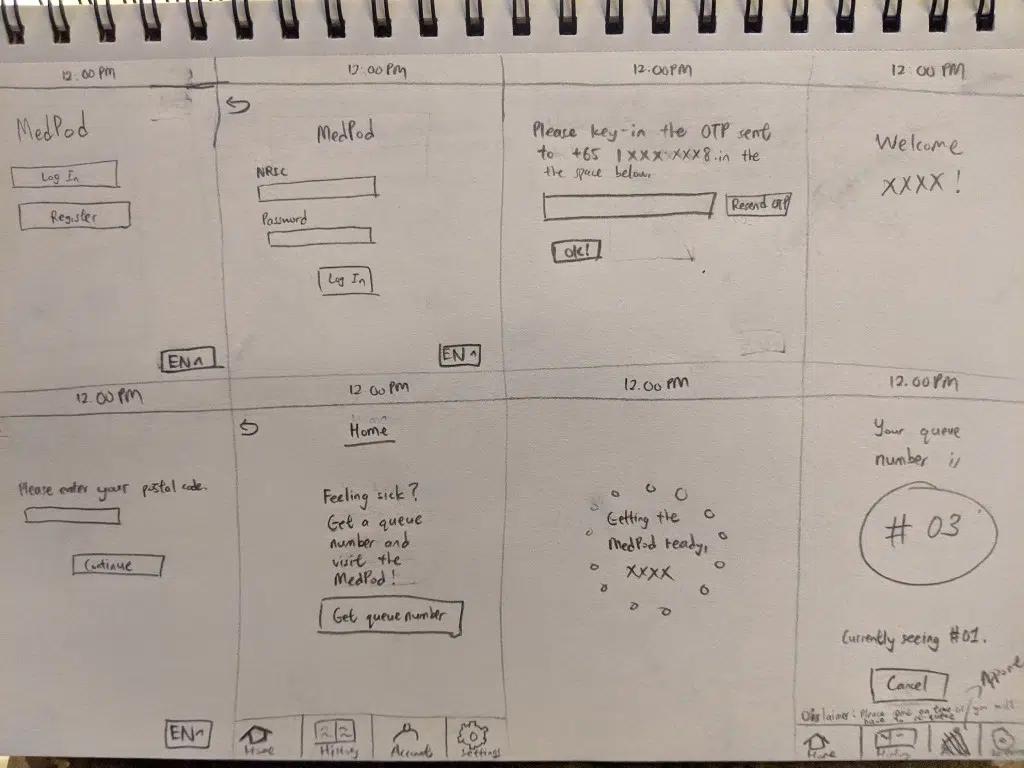 12.00PM
MedPod
Log In
Register
EN^
12.00PM
MedPod
NRIC
Password
Log In
EN^
12.00PM
Please key-in the OTP sent
to +65 1XXX XXX8. in the
the space below.
Resend OTP
OK!
12.00PM
Welcome
XXXX!
12.00PM
Please enter your postal code.
Continue
EN^
12.00PM
Home
Feeling sick?
Get a queue
number and
visit the
MedPod!
Get queue number
Home
History
Accounts
Settings
12.00PM
Getting the
MedPod ready,
XXXX
12.00PM
Your queue
number is
# 03
Currently seeing #01.
Cancel
Disclaimer: Please come on time or you will
have to re-queue
Home
History